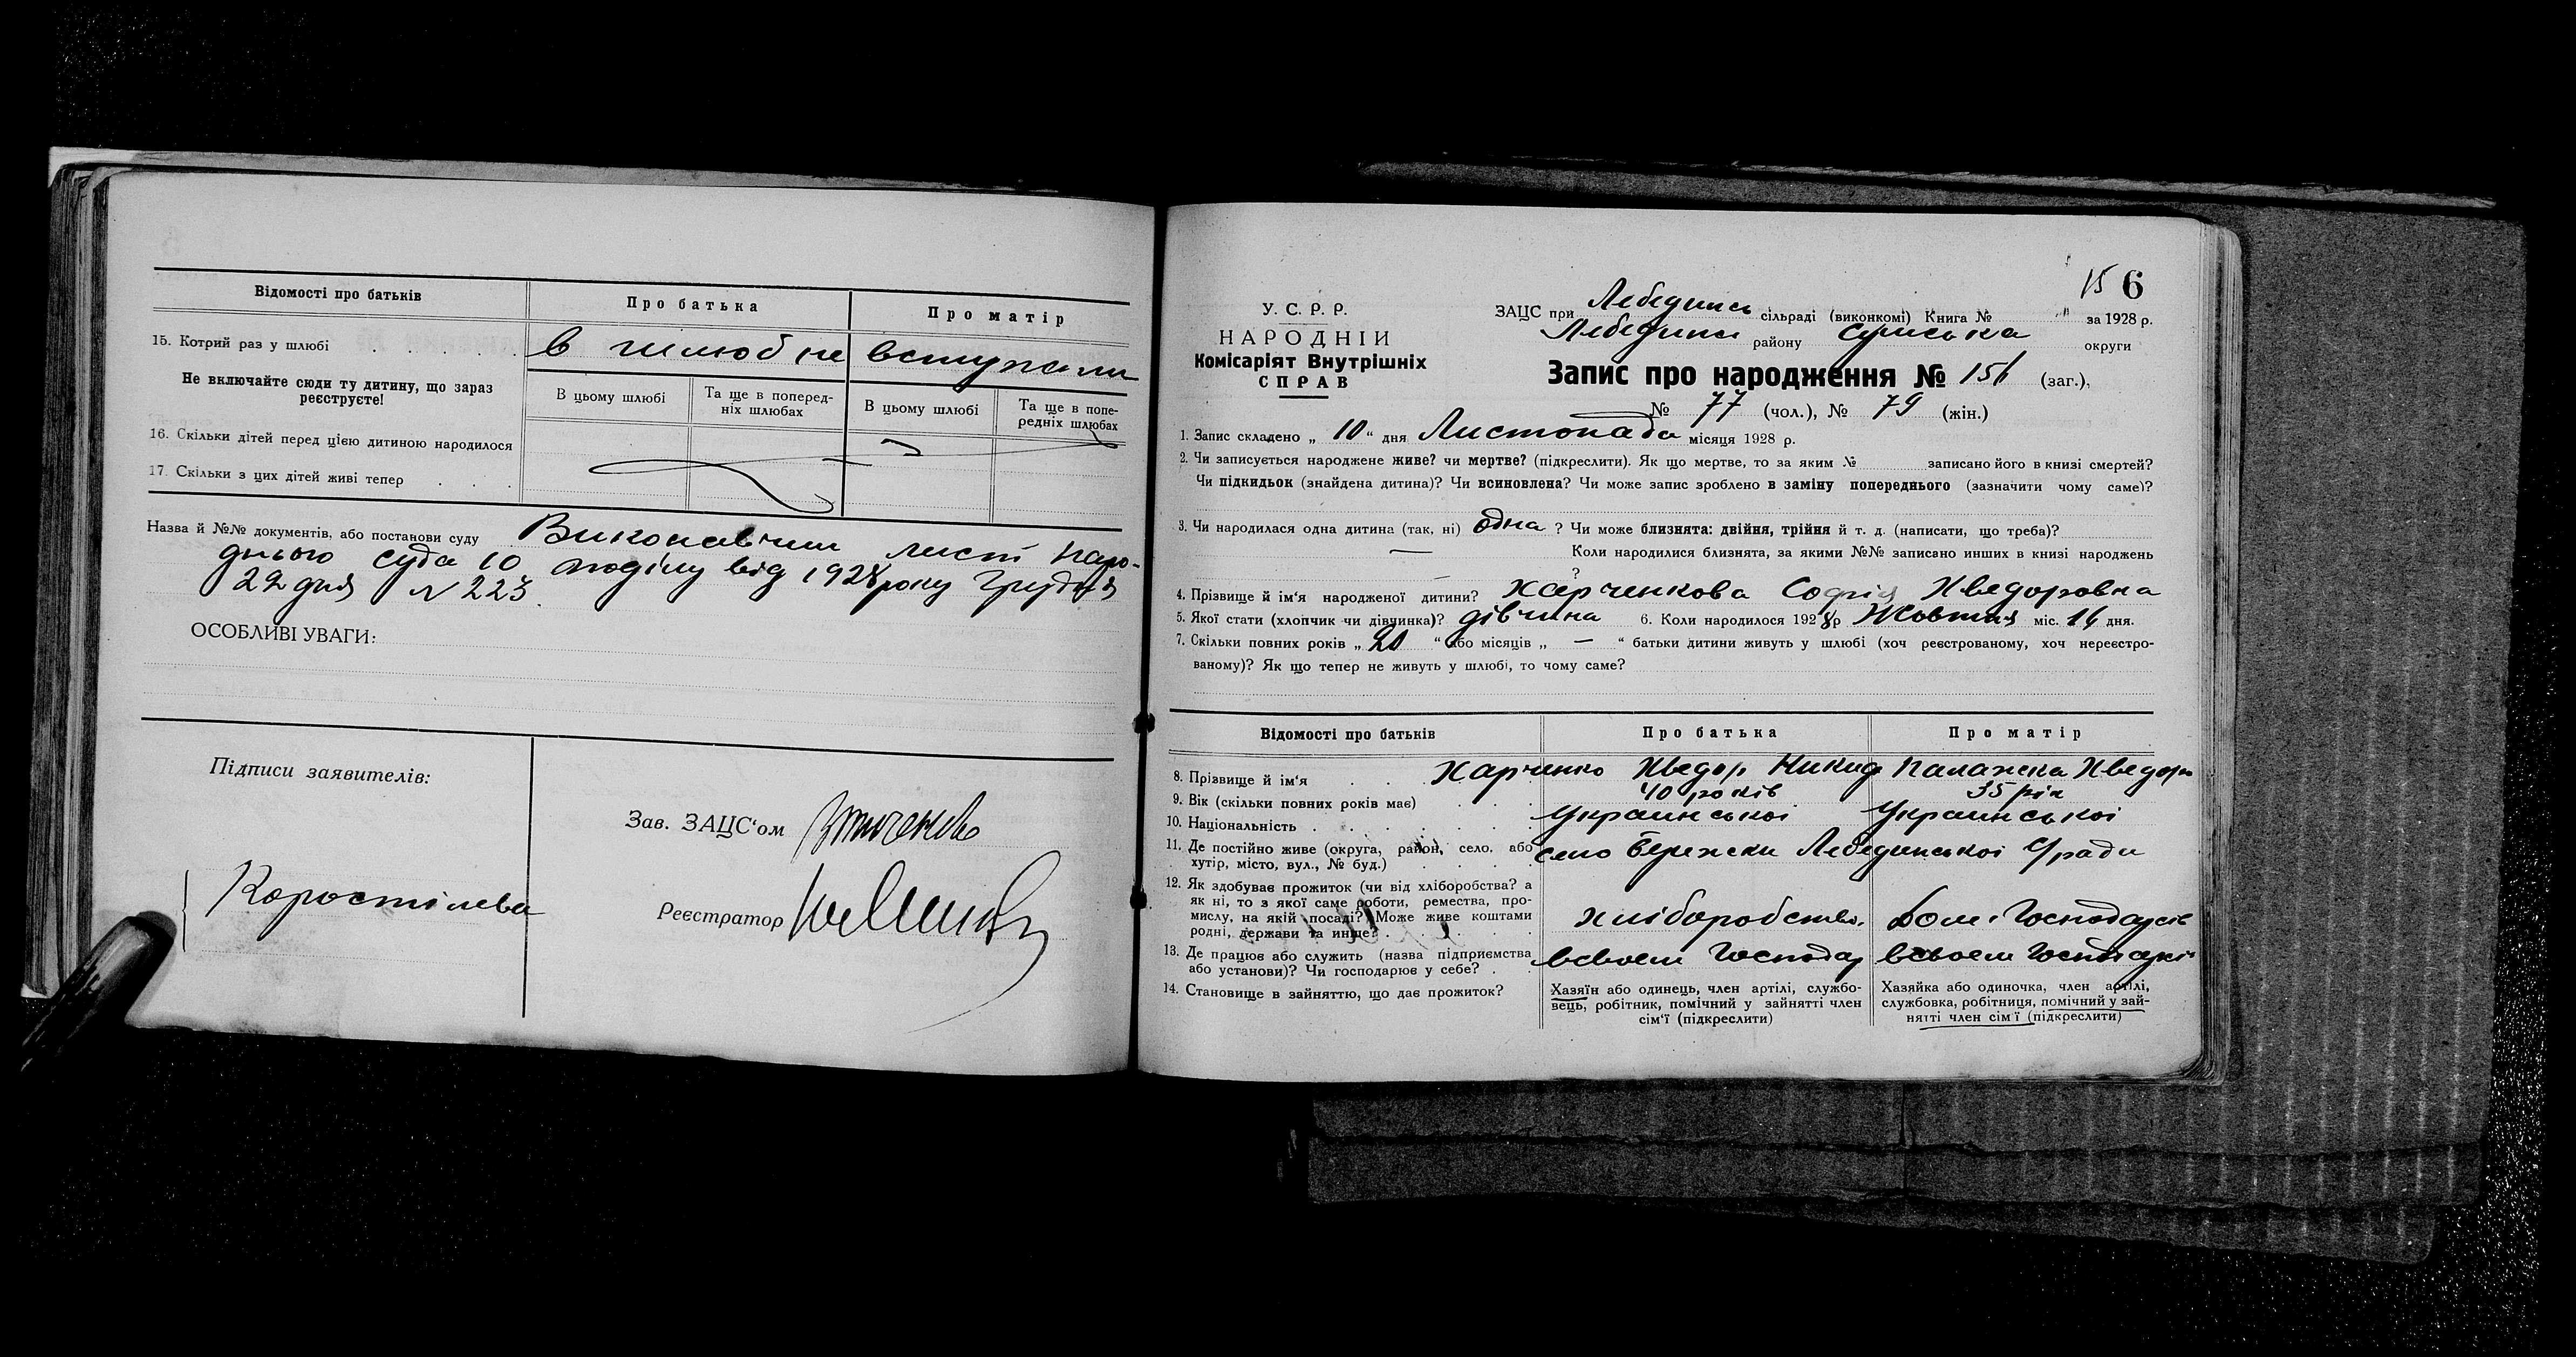 Відомості про батьків
Про батька
Про матір
15. Котрий раз у шлюбі . . . . . .
в шлюб не вступали
Не включайте сюди ту дитину, що зараз
реєструєте!
В цьому шлюбі
Та ще в поперед-
ніх шлюбах
В цьому шлюбі
Та ще в попе-
редніх шлюбах
16. Скільки дітей перед цією дитиною народилося
17. Скільки з цих дітей живі тепер . . .
Назва й №№ документів, або постанови суду Виконавчий лист Наро-
днього суда 10 поділу від 1928 року Грудня
22 дня N 223.
ОСОБЛИВІ УВАГИ:
Підписи заявителів:
Зав. ЗАЦС'ом
Коростілева
Реєстратор
15 6
У. С. Р. Р.
НАРОДНІЙ
Комісаріят Внутрішніх
СПРАВ
ЗАЦС при Лебединсь сільраді (виконкомі) Книга № " за 1928 р.
Лебединсь району Сумська округи
Запис про народження № 156 (заг.),
№ 77 (чол.), № 79 (жін.)
1. Запис складено „ 10 " дня Листопада місяця 1928 р.
2. Чи записується народжене живе? чи мертве? (підкреслити). Як що мертве, то за яким № записано його в книзі смертей?
Чи підкидьок (знайдена дитина)? Чи всиновлена? Чи може запис зроблено в заміну попереднього (зазначити чому саме)?
3. Чи народилася одна дитина (так, ні) одна ? Чи може близнята: двійня, трійня й т. д. (написати, що треба)?
— Коли народилися близнята, за якими №№ записано инших в книзі народжень
— ?
4. Прізвище й ім'я народженої дитини? Харченкова Софія Хведоровна
5. Якої стати (хлопчик чи дівчинка)? дівчина 6. Коли народилося 1928 р Жовтня міс. 14 дня.
7. Скільки повних років „ 20 " або місяців „ — " батьки дитини живуть у шлюбі (хоч реєстрованому, хоч нереєстро-
ваному)? Як що тепер не живуть у шлюбі, то чому саме?
Відомості про батьків
Про батька
Про матір
8. Прізвище й ім'я . . Харченко Хведор Никид Палажка Хведор
9. Вік (скільки повних років має) . . . 40 років 35 рік
10. Національність . . . . . . . Украинськоі Украинськоі
11. Де постійно живе (округа, район, село, або
хутір, місто, вул., № буд.) . . . . село Бережки Лебединськоі С/ради
12. Як здобуває прожиток (чи від хліборобства? а
як ні, то з якої саме роботи, ремества, про-
мислу, на якій посаді? Може живе коштами
родні, держави та инше? . . . . . .
хліборобство. Дом. Господарсв
13. Де працює або служить (назва підприємства
або установи)? Чи господарює у себе? . .
всвоем Господар всвоем Господарсі
14. Становище в зайняттю, що дає прожиток?
Хазяїн або одинець, член артілі, службо-
вець, робітник, помічний у зайнятті член
сім'ї (підкреслити)
Хазяйка або одиночка, член артілі,
службовка, робітниця, помічний у зай-
нятті член сім'ї (підкреслити)